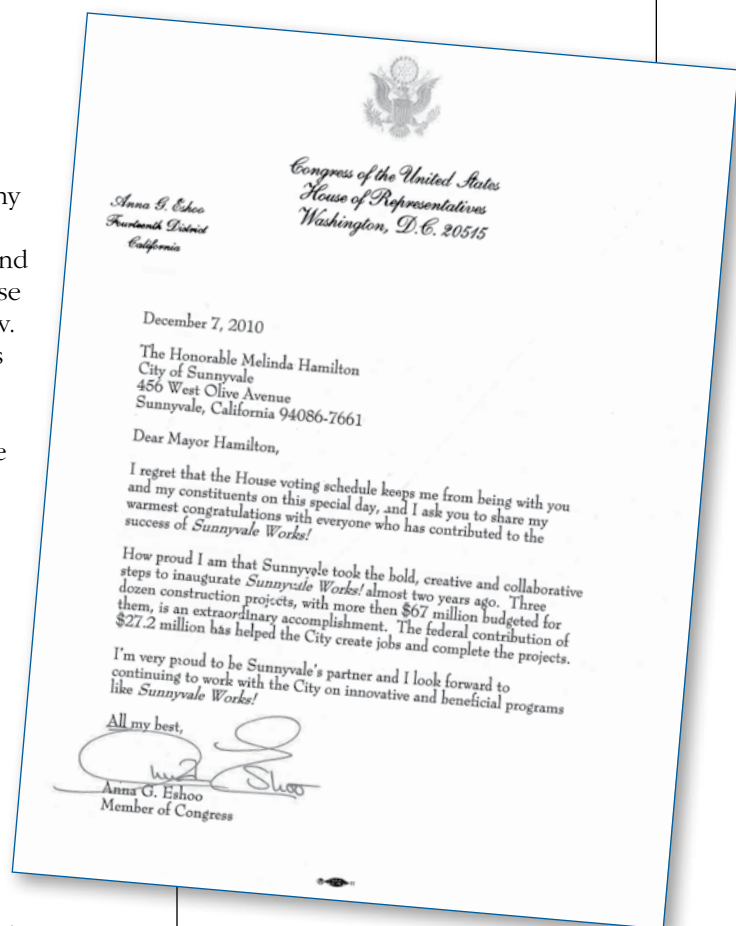 ny
nd
se
v.
s
e
Congress of the United States
House of Representatives
Washington, D.C. 20515
Anna G. Eshoo
Fourteenth District
California
December 7, 2010
The Honorable Melinda Hamilton
City of Sunnyvale
456 West Olive Avenue
Sunnyvale, California 94086-7661
Dear Mayor Hamilton,
I regret that the House voting schedule keeps me from being with you
and my constituents on this special day, and I ask you to share my
warmest congratulations with everyone who has contributed to the
success of Sunnyvale Works!
How proud I am that Sunnyvale took the bold, creative and collaborative
steps to inaugurate Sunnyvale Works! almost two years ago. Three
dozen construction projects, with more then $67 million budgeted for
them, is an extraordinary accomplishment. The federal contribution of
$27.2 million has helped the City create jobs and complete the projects.
I'm very proud to be Sunnyvale's partner and I look forward to
continuing to work with the City on innovative and beneficial programs
like Sunnyvale Works!
All my best,
Anna G. Eshoo
Anna G. Eshoo
Member of Congress